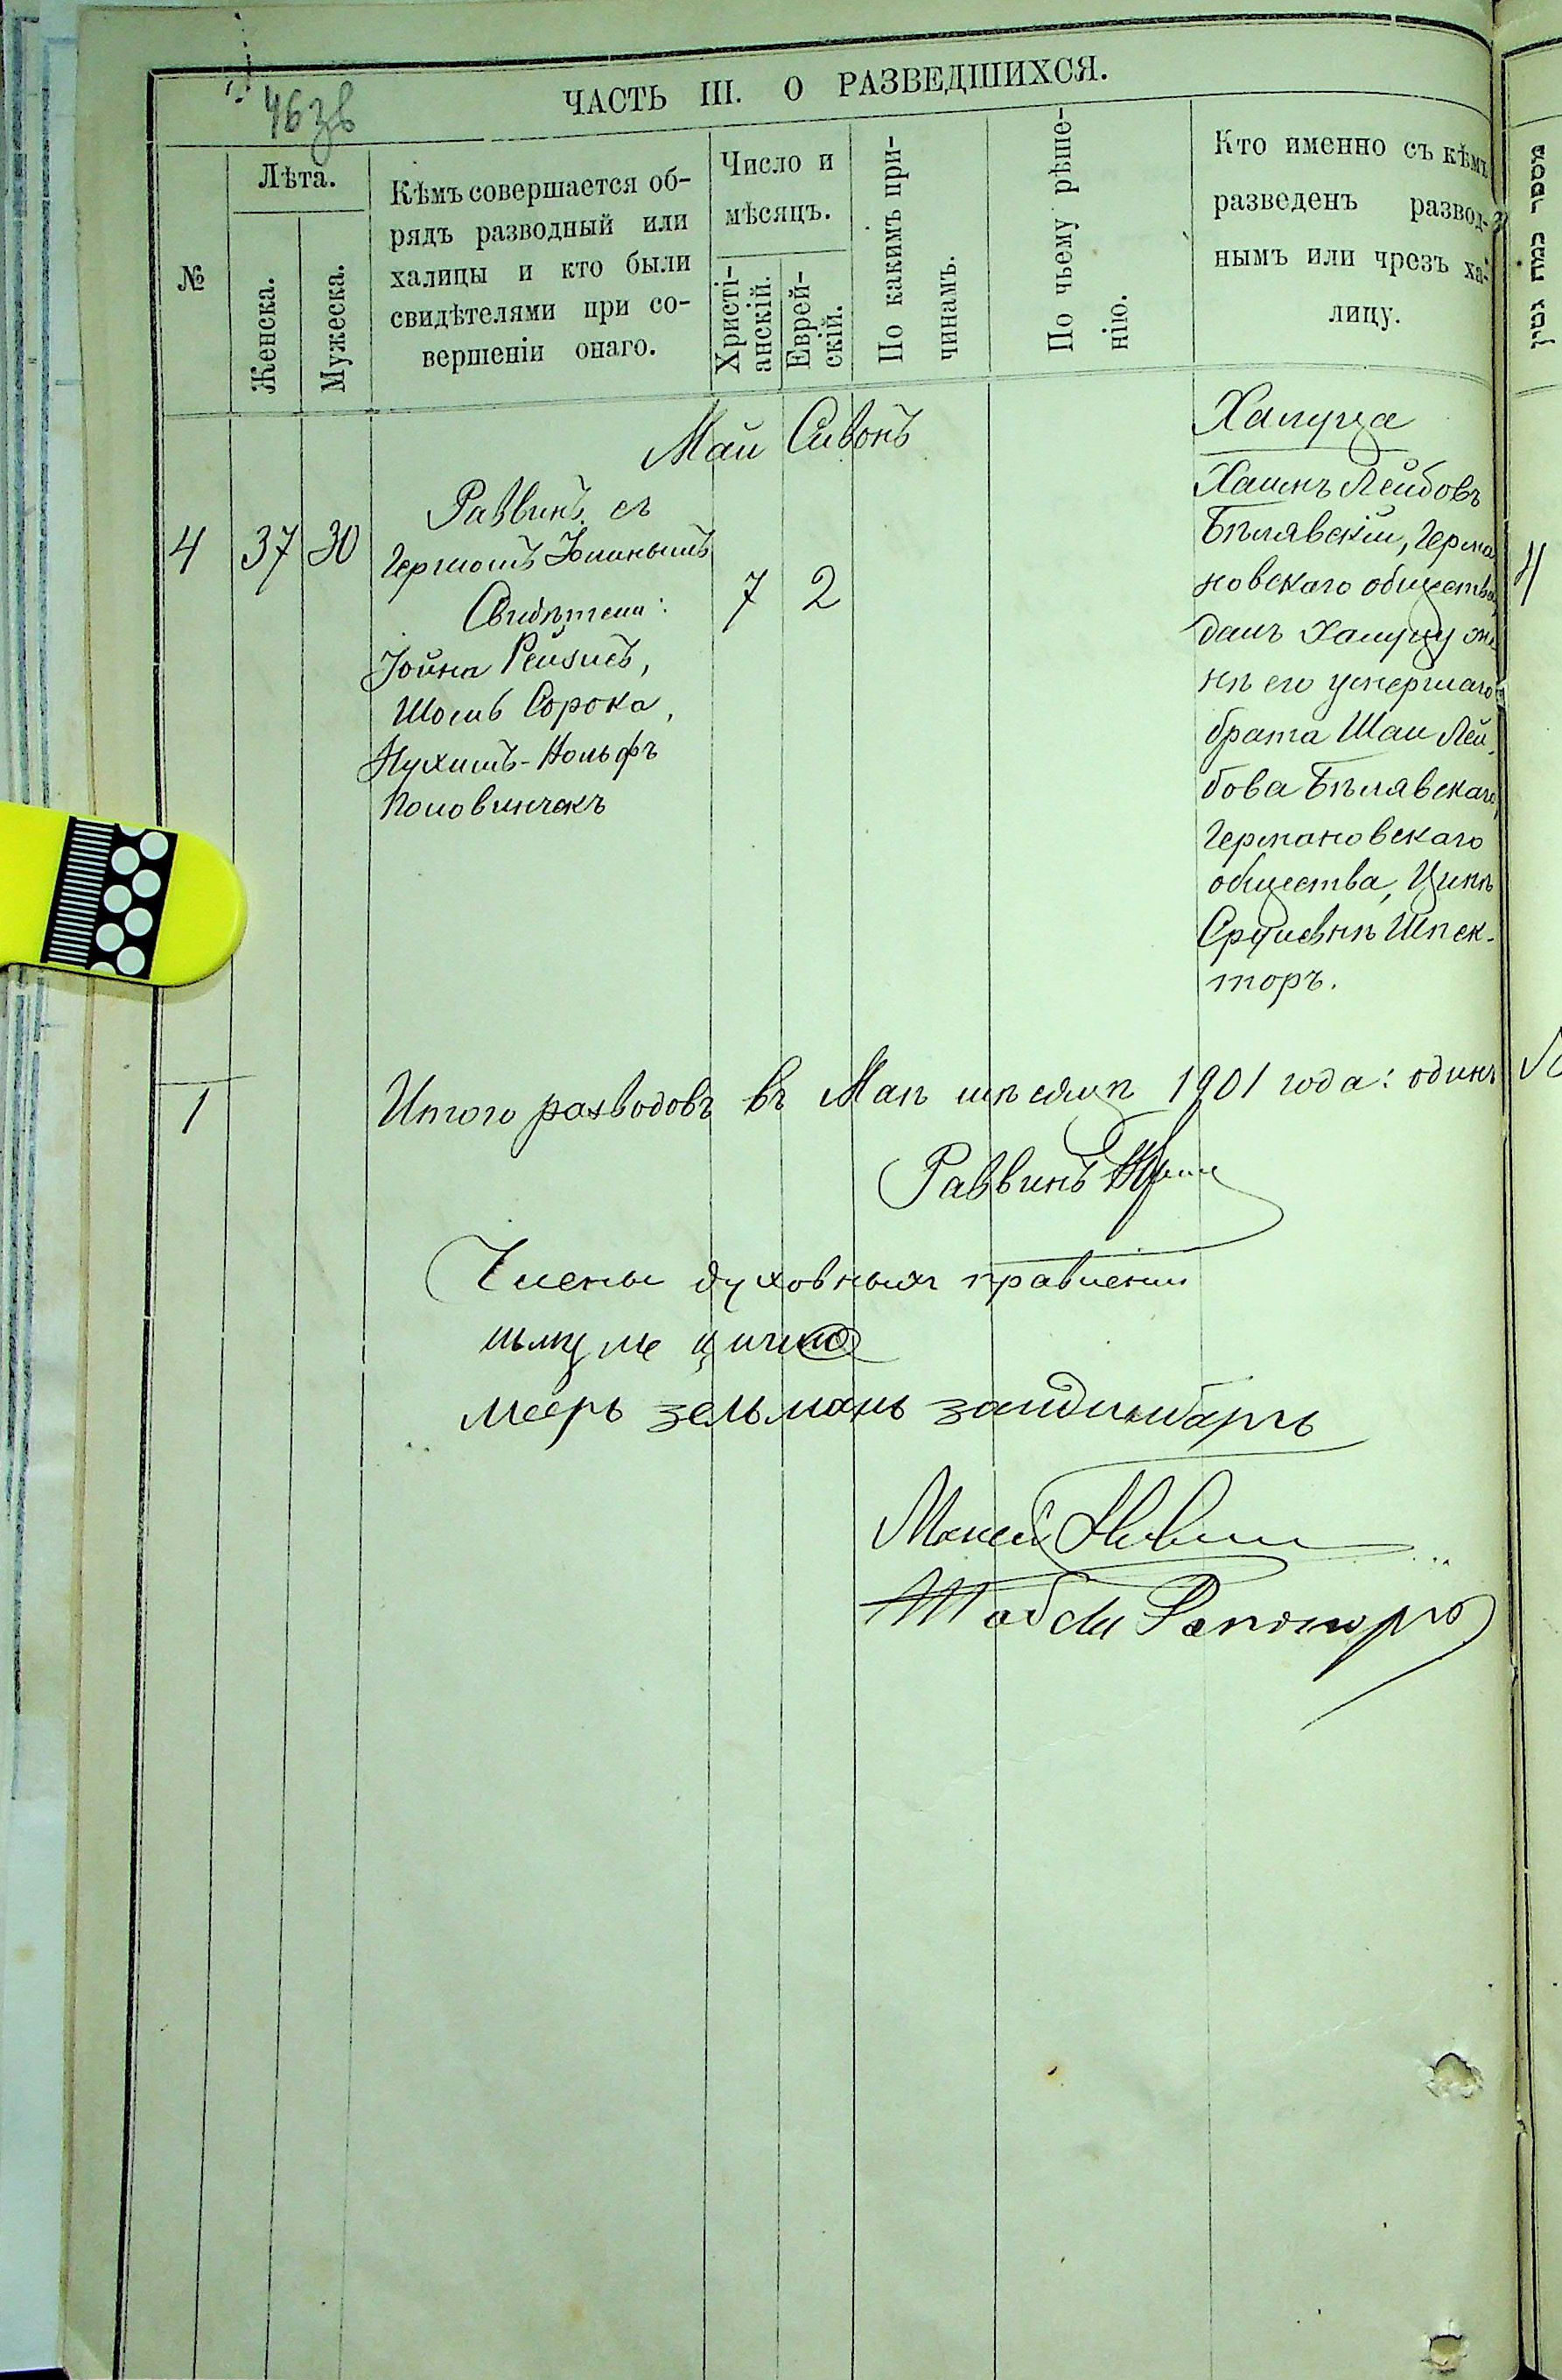 463в
ЧАСТЬ III. О РАЗВЕДШИХСЯ.
№
Лѣта.
Женска.
Мужеска.
Кѣмъ совершается об-
рядъ разводный или
халицы и кто были
свидѣтелями при со-
вершеніи онаго.
Число и
мѣсяцъ.
Христі-
анскій.
Еврей-
скій.
По какимъ при-
чинамъ.
По чьему рѣше-
нію.
Кто именно съ кѣмъ
разведенъ развод-
нымъ или чрезъ ха-
лицу.
מספר כמה גטין
Май Сивонъ
4 37 30
Раввинъ съ
Свидѣтели:
Іойна Рейзисъ,
Шоель Сорока,
Нухимъ-Вольфъ
Половинчекъ
7 2
Халуца
Лейбовъ
Бѣлявскій, Герма
новскаго общества,
далъ Халуцу же
нѣ его умершаго
брата Шаи Лей
бова Бѣлявскаго,
Германовскаго
общества,
Срулевнѣ Шпек-
торъ.
4
1
Итого разводовъ въ Маѣ мѣсяцѣ 1901 года: одинъ
Раввинъ
Члены духовныхъ правленій
меерь зельмань